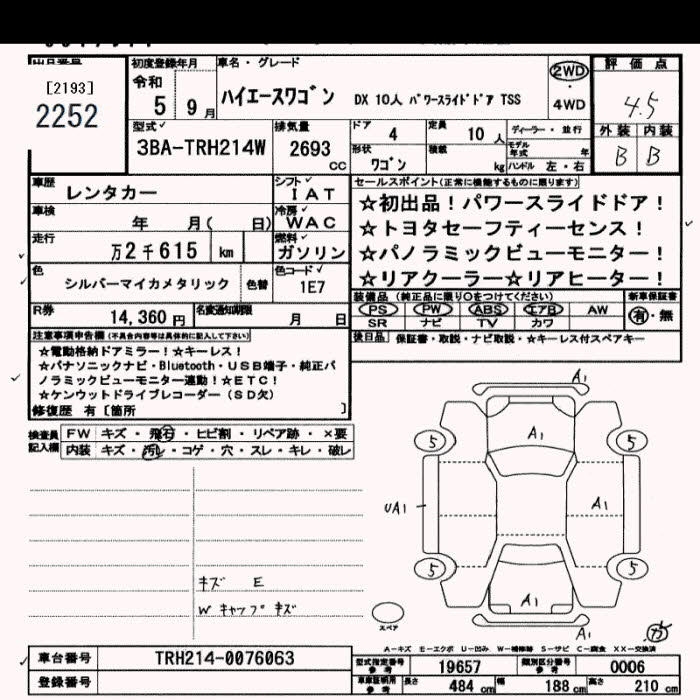 出品番号
[2193]
2252
初度登録年月
令和
5 9月
車名・グレード
ハイエースワゴン DX 10人 パワースライドドア TSS
2WD
・
4WD
評価点
4.5
外装 内装
B B
型式
3BA-TRH214W
排気量
2693
CC
ドア
4
定員
10 人
ディーラー・並行
形状
ワゴン
積載
kg
モデル年式 年
ハンドル 左・右
車歴
レンタカー
シフト
IAT
車検
年 月( 日)
冷房
WAC
走行
万2千615 km
燃料
ガソリン
色
シルバーマイカメタリック
色替
色コード
1E7
R券
14,360 円
名変通知期限
月 日
セールスポイント(正常に機能するものに限ります)
☆初出品!パワースライドドア!
☆トヨタセーフティーセンス!
☆パノラミックビューモニター!
☆リアクーラー☆リアヒーター!
装備品(純正品に限り○をつけてください)
PS PW ABS エアB AW
SR ナビ TV カワ
新車保証書
有・無
後日品 保証書・取説・ナビ取説・☆キーレス付スペアキー
注意事項申告欄(不具合内容等は具体的に記入して下さい)
☆電動格納ドアミラー!☆キーレス!
☆パナソニックナビ・Bluetooth・USB端子・純正パ
ノラミックビューモニター連動!☆ETC!
☆ケンウッドドライブレコーダー(SD欠)
修復歴 有〔箇所 〕
検査員記入欄
FW キズ・飛石・ヒビ割・リペア跡・×要
内装 キズ・汚レ・コゲ・穴・スレ・キレ・破レ
A1
5 A1 5
UA1 A1
5 5
A1
A1
キズ E
W キャップキズ
スペア
A-キズ E-エクボ U-凹み W-補修跡 S-サビ C-腐食 XX-交換済
車台番号
TRH214-0076063
登録番号
型式指定番号
参考
19657
類別区分番号
参考
0006
車庫証明用
参考
長さ 484 cm
幅 188 cm
高さ 210 cm